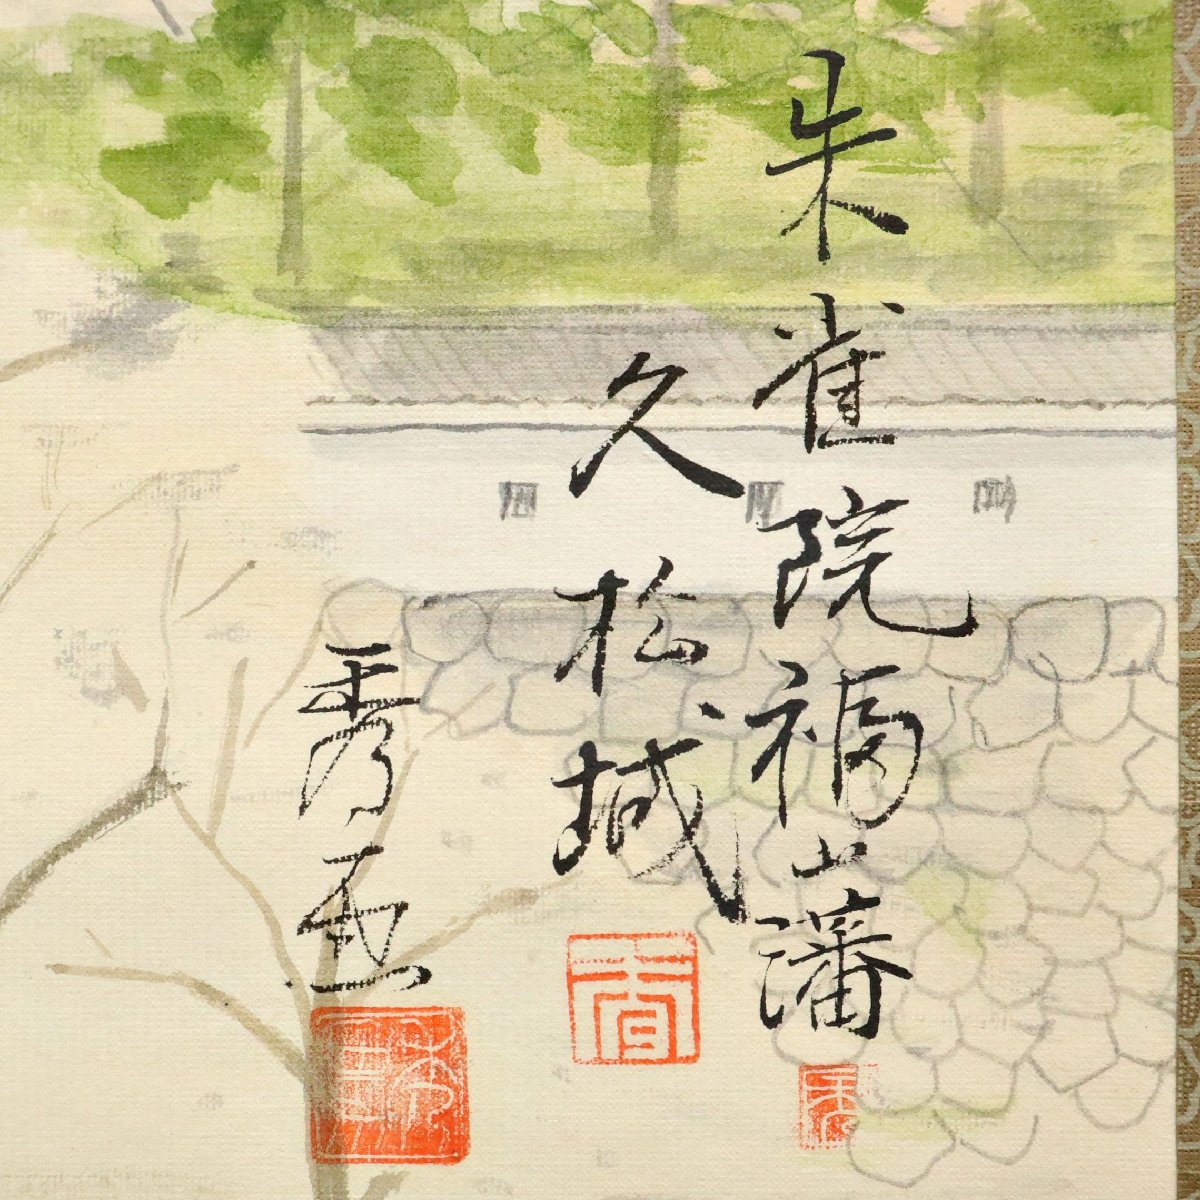 朱雀院福山藩
久松城
秀